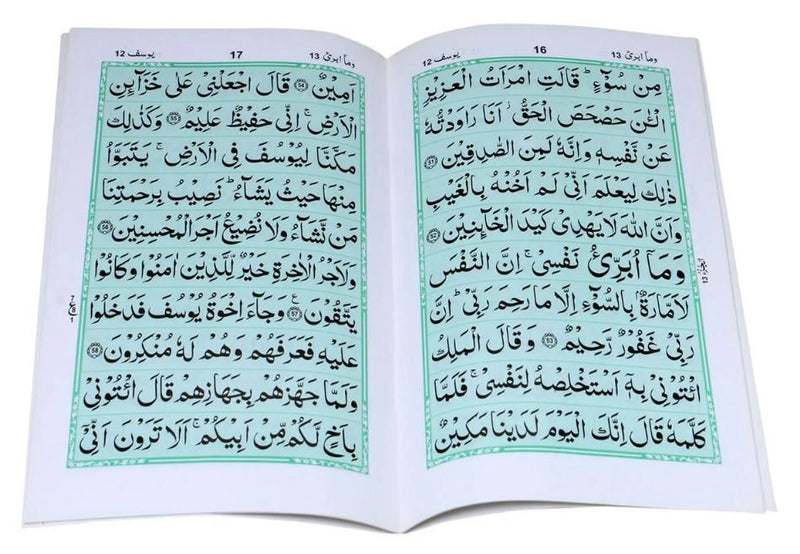 وما ابرئ 13
16
يوسف 12
مِنْ سُوْٓءٍ ؕ قَالَتِ امْرَاَتُ الْعَزِيْزِ
الْـٰٔنَ حَصْحَصَ الْحَقُّ ؗ اَنَا رَاوَدْتُّهٗ
عَنْ نَّفْسِهٖ وَاِنَّهٗ لَمِنَ الصّٰدِقِيْنَ ﴿51﴾
ذٰلِكَ لِيَعْلَمَ اَنِّيْ لَمْ اَخُنْهُ بِالْغَيْبِ
وَاَنَّ اللّٰهَ لَا يَهْدِيْ كَيْدَ الْخَآئِنِيْنَ ﴿52﴾
وَمَآ اُبَرِّئُ نَفْسِيْ ۚ اِنَّ النَّفْسَ
لَاَمَّارَةٌۢ بِالسُّوْٓءِ اِلَّا مَا رَحِمَ رَبِّيْ ؕ اِنَّ
رَبِّيْ غَفُوْرٌ رَّحِيْمٌ ﴿53﴾ وَقَالَ الْمَلِكُ
ائْتُوْنِيْ بِهٖٓ اَسْتَخْلِصْهُ لِنَفْسِيْ ۚ فَلَمَّا
كَلَّمَهٗ قَالَ اِنَّكَ الْيَوْمَ لَدَيْنَا مَكِيْنٌ
الجزء 13
وما ابرئ 13
17
يوسف 12
اَمِيْنٌ ﴿54﴾ قَالَ اجْعَلْنِيْ عَلٰى خَزَآئِنِ
الْاَرْضِ ۚ اِنِّيْ حَفِيْظٌ عَلِيْمٌ ﴿55﴾ وَكَذٰلِكَ
مَكَّنَّا لِيُوْسُفَ فِي الْاَرْضِ ۚ يَتَبَوَّاُ
مِنْهَا حَيْثُ يَشَآءُ ؕ نُصِيْبُ بِرَحْمَتِنَا
مَنْ نَّشَآءُ وَلَا نُضِيْعُ اَجْرَ الْمُحْسِنِيْنَ ﴿56﴾
وَلَاَجْرُ الْاٰخِرَةِ خَيْرٌ لِّلَّذِيْنَ اٰمَنُوْا وَكَانُوْا
يَتَّقُوْنَ ﴿57﴾ ع وَجَآءَ اِخْوَةُ يُوْسُفَ فَدَخَلُوْا
عَلَيْهِ فَعَرَفَهُمْ وَهُمْ لَهٗ مُنْكِرُوْنَ ﴿58﴾
وَلَمَّا جَهَّزَهُمْ بِجَهَازِهِمْ قَالَ ائْتُوْنِيْ
بِاَخٍ لَّكُمْ مِّنْ اَبِيْكُمْ ۚ اَلَا تَرَوْنَ اَنِّيْٓ